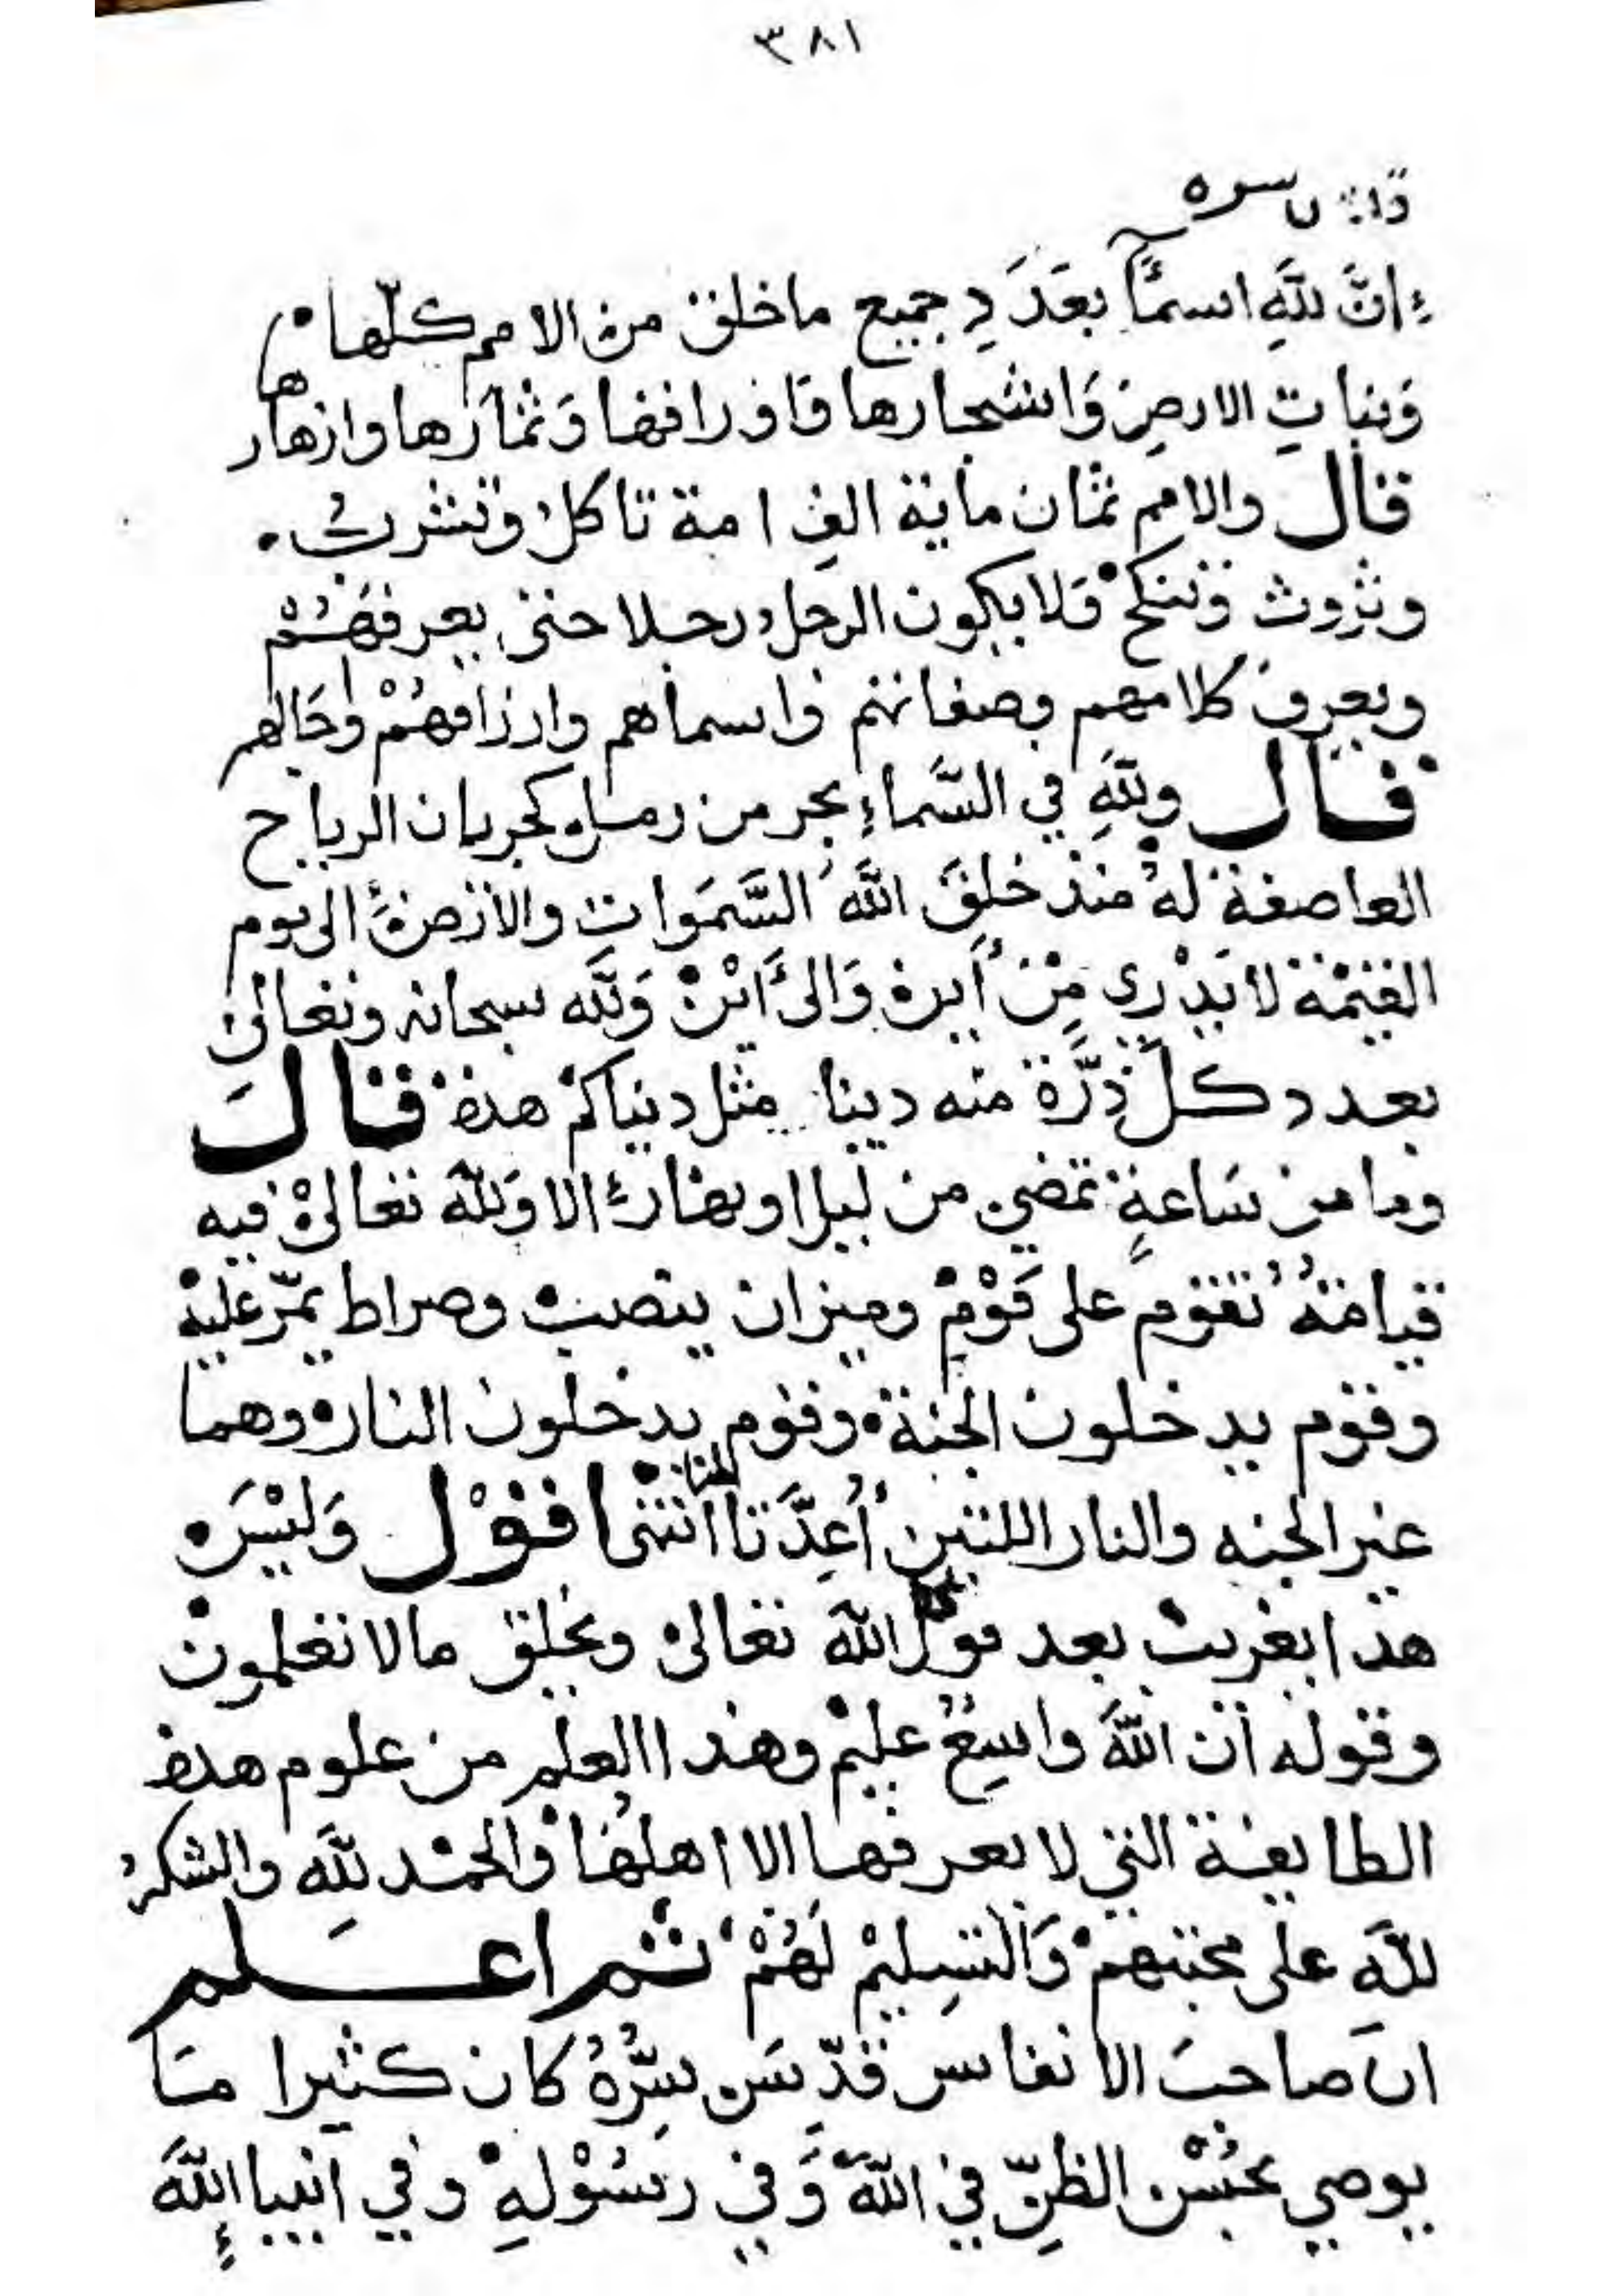 ٣٨١
قدس سره
إنَّ للَّهِ اسمًا بعَدَدِ جميع ما خلق من الامم كلّها
وَنباتِ الارضِ وَاشجارها وَاوراقها وَثمارَها وازهارها
قال والامم ثمان ماية الفِ امة تاكل وتشرب
وتروث وتنكح ولا يكون الرجل رجلا حتى يعرفهُمْ
ويعرف كلامهم وصفاتهم واسماهم وارزاقهُمْ واجَالهم
قال وللَّهِ في السَّماءِ بحر من رمل كجريان الرياح
العاصفة لهُ منذ خلقَ اللَّهُ السَّمَواتِ والارض الى يوم
القيمة لا يَدْري مِنْ أين وَالىَ اَيْنَ وَللَّه سبحانه وتعالى
بعدد كل ذرَّة منه دينا مثل دنياكم هذه قال
وما من سَاعةٍ تمضي من ليل او نهار الا وَللَّه تعالى فيه
قيامةُ تقوم على قَوْمٍ وميزان ينصب وصراط يمرّ عليه
وقوم يدخلون الجنة وقوم يدخلون النار وهما
غير الجنه والنار اللتين أُعِدَّتا لنا انتهى اقول وَليْسَ
هذا بغريب بعد قول اللَّه تعالى ويخلق مالا تعلمون
وقوله ان اللَّهَ واسِعٌ عليم وهذا العلم من علوم هذه
الطايفة التي لا يعرفها الا اهلهُا والحمد للَّه والشكرُ
للَّهِ على محبتهم وَالتسِليمْ لَهُمْ ثم اعلم
ان صاحبَ الانفاس قدّسَ سِرُّهُ كان كثيرا مَا
يوصي بحُسْن الظنِّ في اللَّه وَفي رَسُوْلهِ وفي انبياءِ اللَّهَ